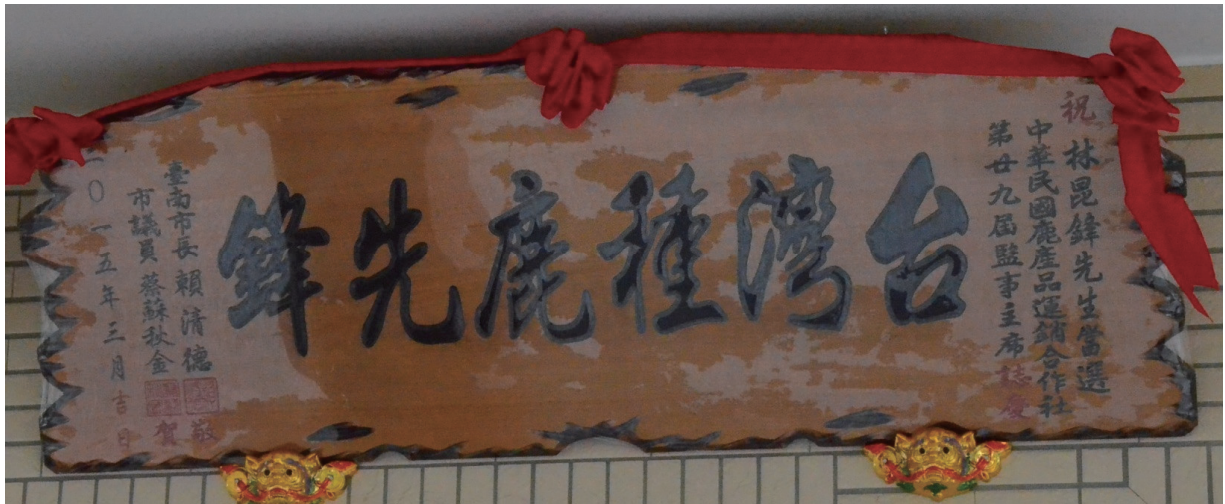 祝
林昆鋒先生當選
中華民國鹿産品運銷合作社
第廿九屆監事主席誌慶
台灣種鹿先鋒
臺南市長賴清德
市議員蔡蘇秋金
敬賀
二〇一五年三月吉日